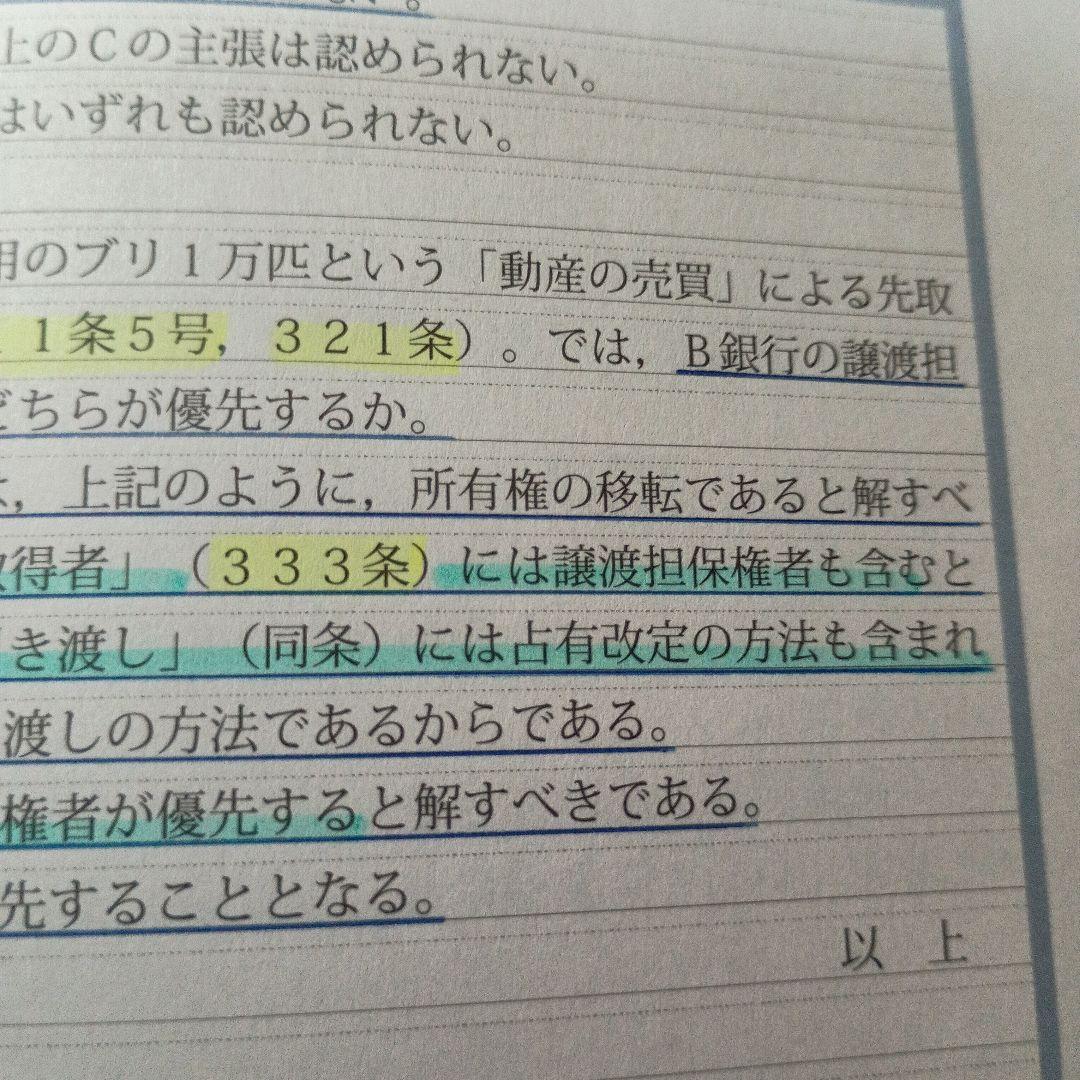 上のCの主張は認められない。
はいずれも認められない。
用のブリ1万匹という「動産の売買」による先取
1条5号,321条)。では,B銀行の譲渡担
どちらが優先するか。
,上記のように,所有権の移転であると解すべ
取得者」(333条)には譲渡担保権者も含むと
き渡し」(同条)には占有改定の方法も含まれ
渡しの方法であるからである。
権者が優先すると解すべきである。
先することとなる。
以 上